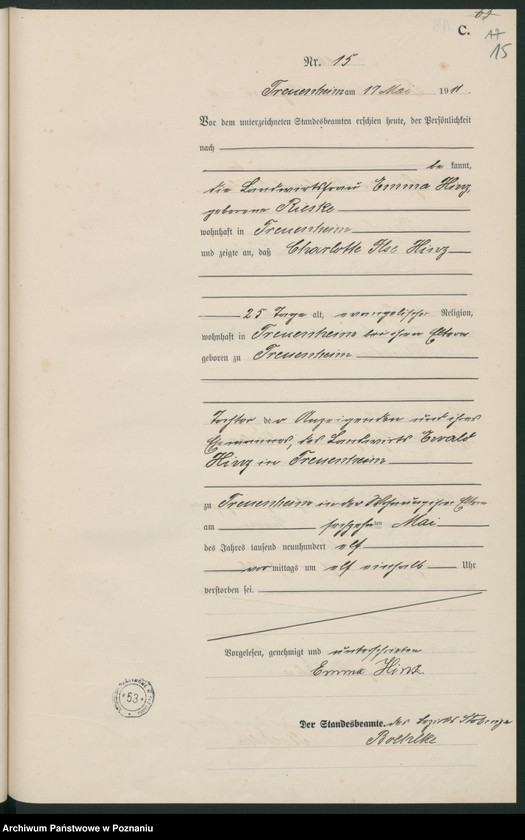 C.
17
15
Nr. 15
Treuenheim am 17 Mai 1911.
Vor dem unterzeichneten Standesbeamten erschien heute, der Persönlichkeit
nach
be kannt,
die Landwirtsfrau Emma Hinz,
geborene Rieske
wohnhaft in Treuenheim
und zeigte an, daß Charlotte Ilse Hinz
25 Tage alt, evangelischer Religion,
wohnhaft in Treuenheim bei ihren Eltern
geboren zu Treuenheim
Tochter der Anzeigenden und ihres
Ehemannes, des Landwirts Ewald
Hinz in Treuenheim
zu Treuenheim in der Wohnung ihrer Eltern
am sechzehnten Mai
des Jahres tausend neunhundert elf
vor mittags um elf einhalb Uhr
verstorben sei.
Vorgelesen, genehmigt und unterschrieben
Emma Hinz
Der Standesbeamte. des Bezirks
53
Archiwum Państwowe w Poznaniu